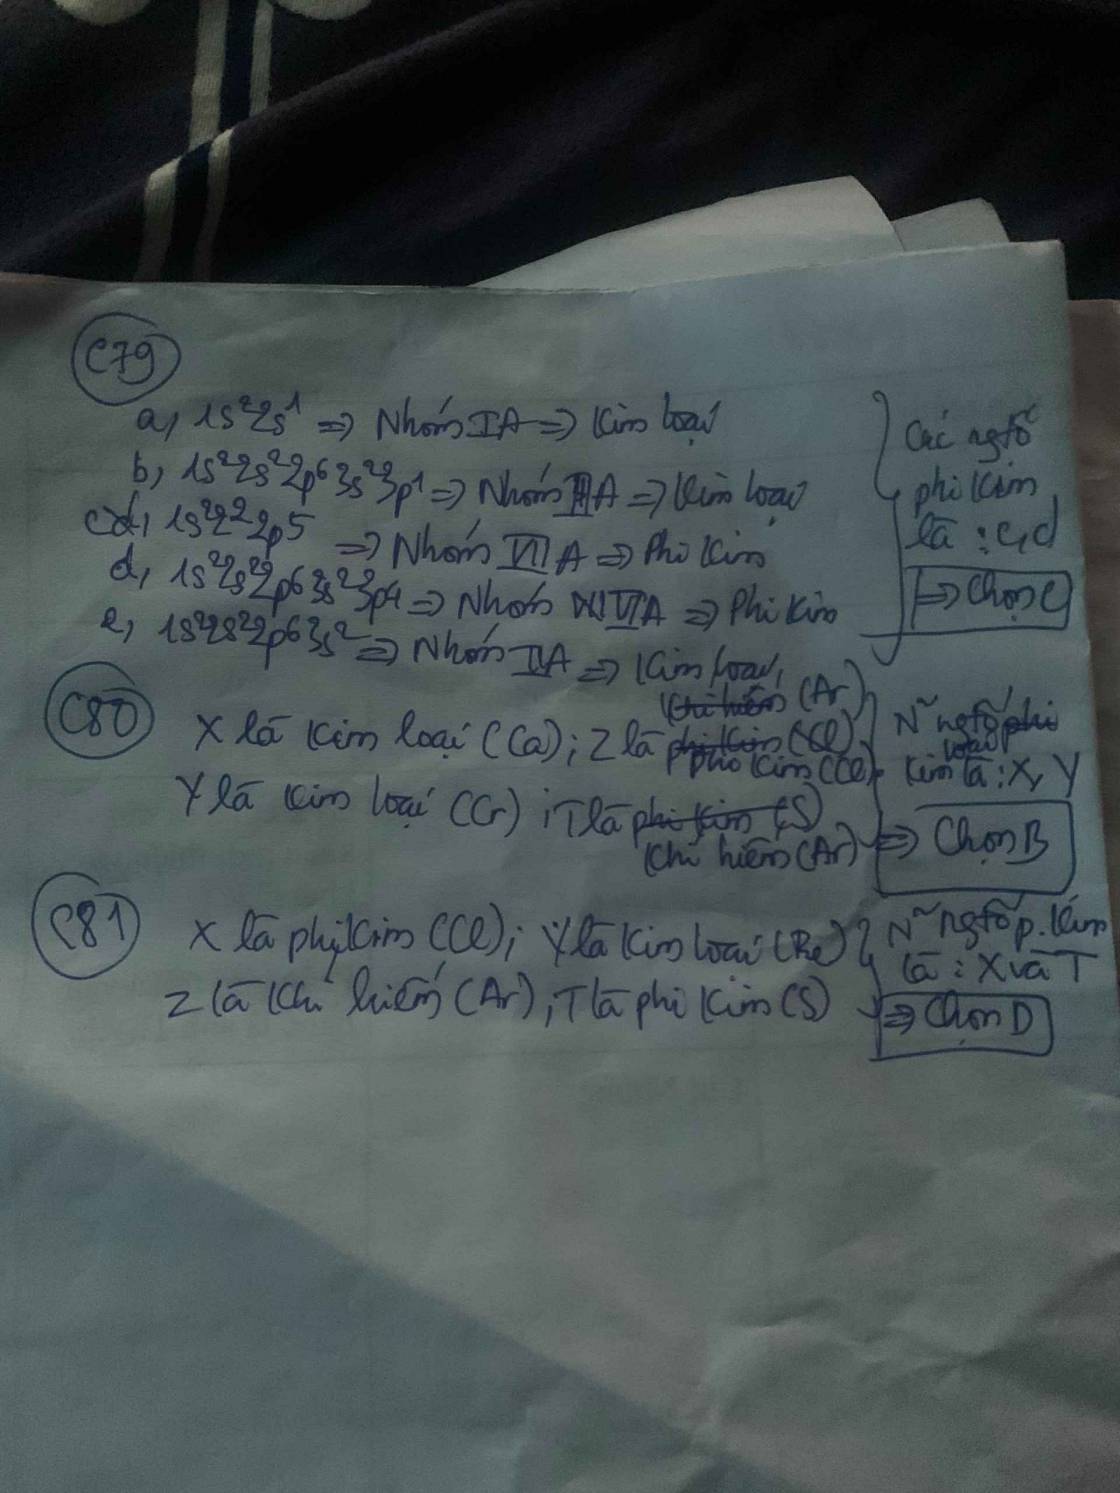 C79
a, 1s²2s¹ => Nhóm IA => Kim loại
b, 1s²2s²2p⁶3s²3p¹ => Nhóm IIIA => Kim loại
c, 1s²2s²2p⁵ => Nhóm VIIA => Phi kim
d, 1s²2s²2p⁶3s²3p⁴ => Nhóm VIA => Phi kim
e, 1s²2s²2p⁶3s² => Nhóm IIA => Kim loại
Các ngtố
phi kim
là : c, d
=> Chọn C
C80
X là kim loại (Ca); Z là phi kim (Cl)
Y là kim loại (Cr); T là khí hiếm (Ar)
N~ ngtố
kim loại là : X, Y
=> Chọn B
C81
X là phi kim (Cl); Y là kim loại
Z là khí hiếm (Ar), T là phi kim (S)
N~ ngtố p. kim
là : X và T
=> Chọn D